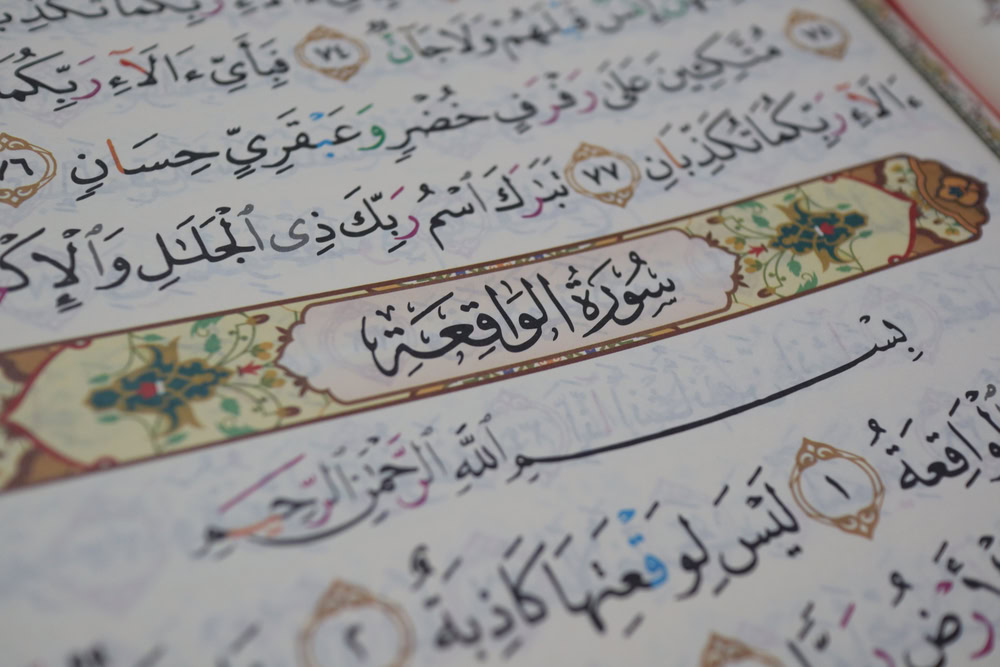 رَبِّكُمَا تُكَذِّبَا
إِنسٌ قَبْلَهُمْ وَلَا جَآنٌّ ٧٤ فَبِأَيِّ ءَالَآءِ رَبِّكُمَا
٧٥ مُتَّكِـِٔينَ عَلَىٰ رَفْرَفٍ خُضْرٍ وَعَبْقَرِيٍّ حِسَانٍ ٧٦
ءَالَآءِ رَبِّكُمَا تُكَذِّبَانِ ٧٧ تَبَٰرَكَ ٱسْمُ رَبِّكَ ذِى ٱلْجَلَٰلِ وَٱلْإِكْ
سُورَةُ الوَاقِعَةِ
بِسْمِ ٱللَّهِ ٱلرَّحْمَٰنِ ٱلرَّحِيمِ
ٱلْوَاقِعَةُ ١ لَيْسَ لِوَقْعَتِهَا كَاذِبَةٌ ٢
ٱلْأَرْضُ